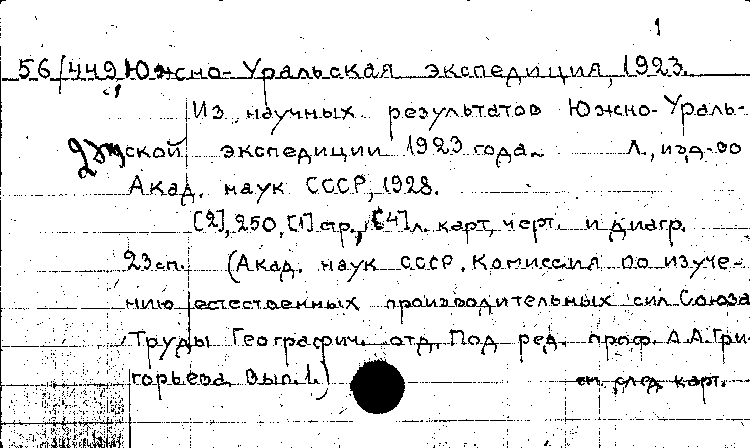 1
56/449 Южно-Уральская экспедиция, 1923.
Из научных результатов Южно-Ураль-
ской экспедиции 1923 года. Л., изд-во
Акад. наук СССР, 1928.
[2], 250, [1] стр., [4] л. карт, черт. и диагр.
23 см. (Акад. наук СССР. Комиссия по изуче-
нию естественных производительных сил Союза
Труды Географич. отд. Под ред. проф. А.А. Гри-
горьева. Вып. 1.)
см. след. карт.